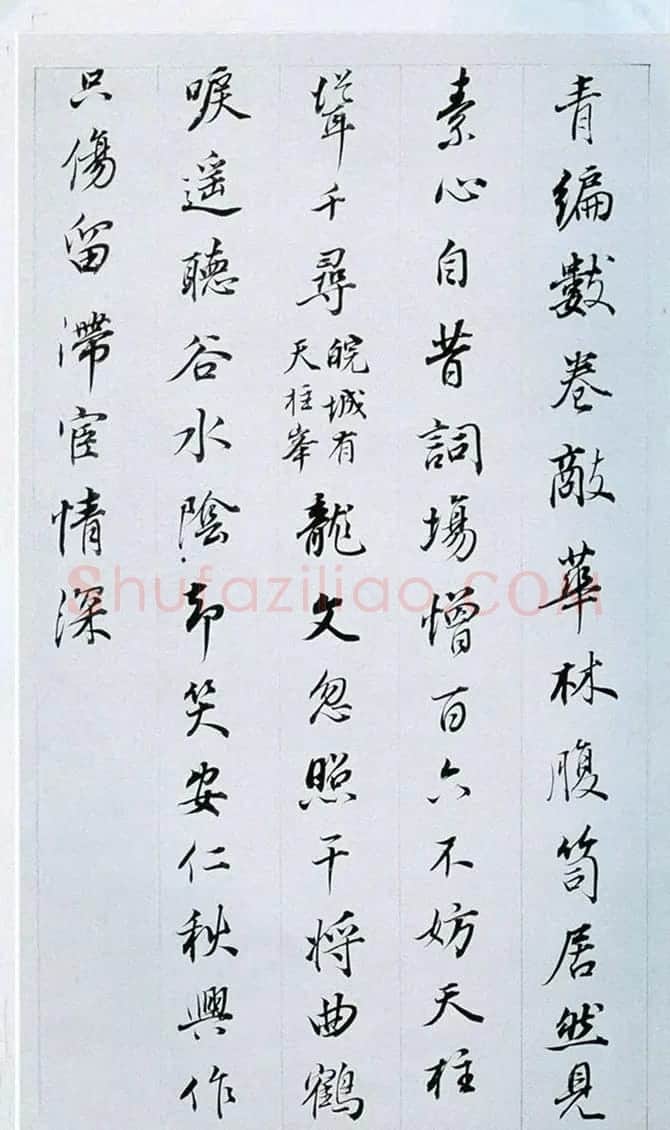 青編數卷敵華林腹笥居然見
素心自昔詞場憎百六不妨天柱
聳千尋皖城有天柱峯龍文忽照干將曲鶴
唳遥聽谷水陰却笑安仁秋興作
只傷留滯宦情深
Shufaziliao.COM